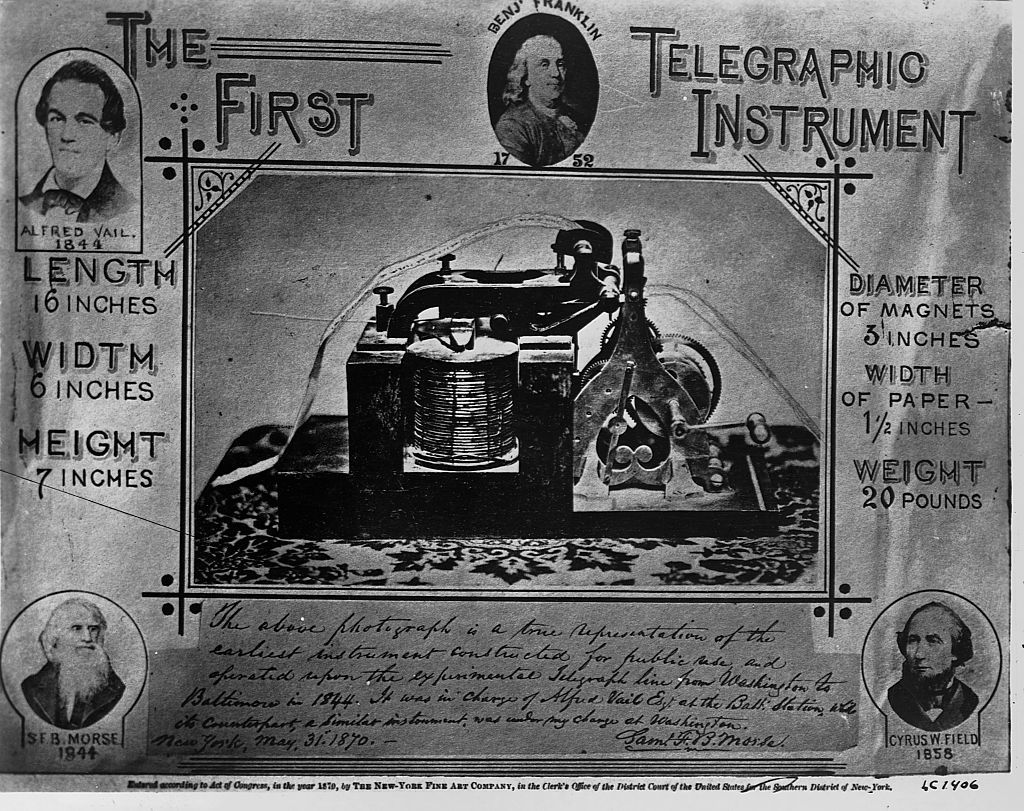 THE
FIRST
BENJ. FRANKLIN
1752
TELEGRAPHIC
INSTRUMENT
ALFRED VAIL.
1844
LENGTH
16 INCHES
WIDTH
6 INCHES
HEIGHT
7 INCHES
DIAMETER
OF MAGNETS
3 INCHES
WIDTH
OF PAPER—
1½ INCHES
WEIGHT
20 POUNDS
The above photograph is a true representation of the
earliest instrument constructed for public use, and
operated upon the experimental Telegraph line from Washington to
Baltimore in 1844. It was in charge of Alfred Vail Esq. at the Balt. Station, and
its counterpart, a similar instrument, was under my charge at Washington.
New York, May, 31. 1870. — Saml. F. B. Morse.
S.F.B. MORSE
1844
CYRUS W. FIELD
1858
Entered according to Act of Congress, in the year 1870, by THE NEW-YORK FINE ART COMPANY, in the Clerk's Office of the District Court of the United States for the Southern District of New-York.
LC 1406